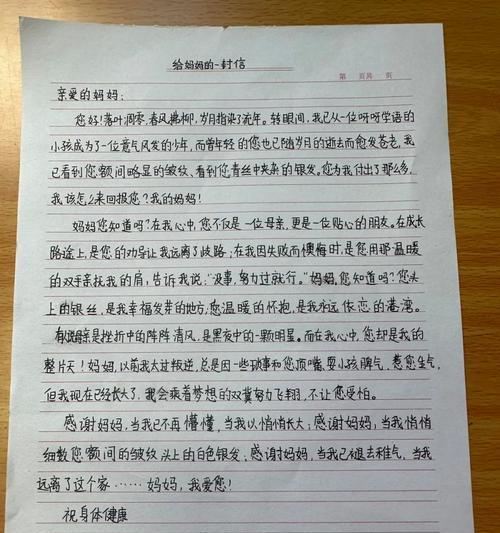 给妈妈的一封信
第 页共 页
亲爱的妈妈:
您好!落叶凋零,春风拂柳,岁月指染了流年。转眼间,我已从一位呀呀学语的
小孩成为了一位意气风发的少年,而曾年轻的您也已随岁月的逝去而愈发苍老,我
已看到您额间略显的皱纹、看到您青丝中夹杂的银发。您为我付出了那么多,
我该怎么来回报您?我的妈妈!
妈妈您知道吗?在我心中,您不仅是一位母亲,更是一位贴心的朋友。在成长
路途上,是您的劝导让我远离了歧路;在我因失败而懊悔时,是您用那温暖
的双手亲抚我的肩,告诉我说:“没事,努力过就行。”妈妈,您知道吗?您头
上的银丝,是我幸福发芽的地方;您温暖的怀抱,是我永远依恋的港湾。
有人说母亲是挫折中的阵阵清风,是黑夜中的一颗明星。而在我心中,您却是我的
整片天!妈妈,以前我太过叛逆,总是因一些琐事和您顶嘴,耍小孩脾气,惹您生气,
但我现在已经长大了,我会乘着梦想的双翼努力飞翔,不让您受怕。
感谢妈妈,当我已不再懵懂,当我以悄悄长大;感谢妈妈,当我悄悄
细数您额间的皱纹头上的白色银发;感谢妈妈,当我已褪去稚气,当我
远离了这个家……妈妈,我爱您!
祝身体健康